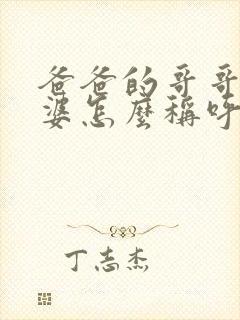 爸爸的哥哥
婆怎麼稱呼
丁志杰